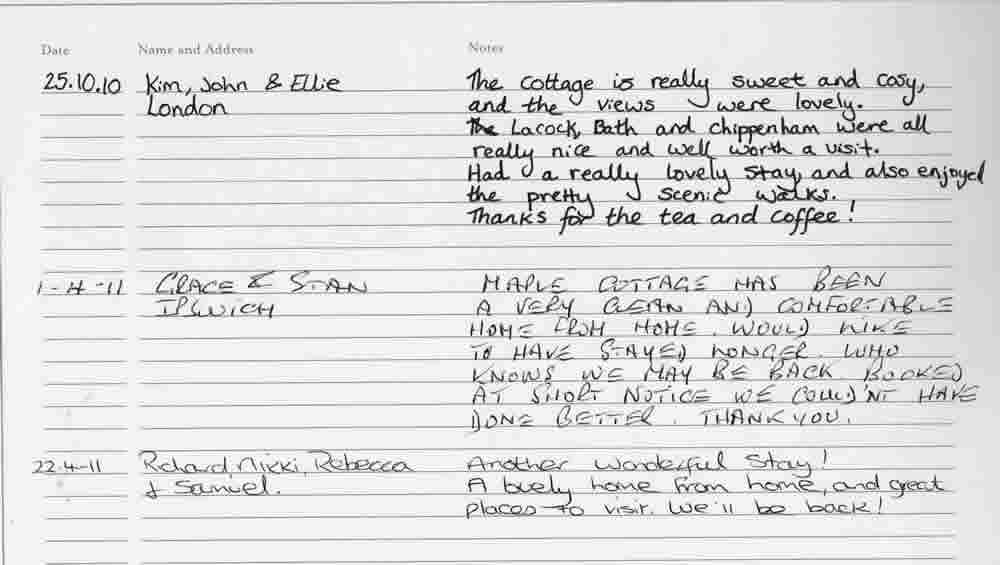 Date Name and Address Notes
25.10.10 Kim, John & Ellie The cottage is really sweet and cosy,
London and the views were lovely.
The Lacock, Bath and Chippenham were all
really nice and well worth a visit.
Had a really lovely stay, and also enjoyed
the pretty scenic walks.
Thanks for the tea and coffee!
1-4-11 GRACE & STAN MAPLE COTTAGE HAS BEEN
IPSWICH A VERY CLEAN AND COMFORTABLE
HOME FROM HOME. WOULD LIKE
TO HAVE STAYED LONGER. WHO
KNOWS WE MAY BE BACK. BOOKED
AT SHORT NOTICE WE COULD'NT HAVE
DONE BETTER. THANK YOU.
22-4-11 Richard, Nikki, Rebecca Another wonderful stay!
& Samuel. A lovely home from home, and great
places to visit. We'll be back!